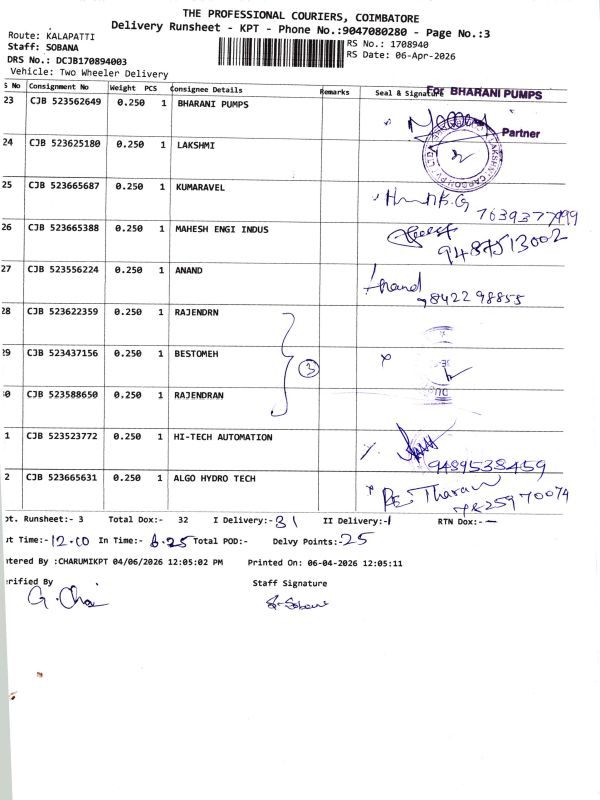 THE PROFESSIONAL COURIERS, COIMBATORE
Delivery Runsheet - KPT - Phone No.:9047080280 - Page No.:3
Route: KALAPATTI
Staff: SOBANA
RS No.: 1708940
DRS No.: DCJB170894003
RS Date: 06-Apr-2026
Vehicle: Two Wheeler Delivery
S No Consignment No Weight PCS Consignee Details Remarks Seal & Signature
For BHARANI PUMPS
23 CJB 523562649 0.250 1 BHARANI PUMPS
Partner
24 CJB 523625180 0.250 1 LAKSHMI
25 CJB 523665687 0.250 1 KUMARAVEL
7639377499
26 CJB 523665388 0.250 1 MAHESH ENGI INDUS
9487513002
27 CJB 523556224 0.250 1 ANAND Anand
9842298855
28 CJB 523622359 0.250 1 RAJENDRN
29 CJB 523437156 0.250 1 BESTOMEH
3
0 CJB 523588650 0.250 1 RAJENDRAN
1 CJB 523523772 0.250 1 HI-TECH AUTOMATION
9489538459
2 CJB 523665631 0.250 1 ALGO HYDRO TECH
7825970074
ot. Runsheet:- 3 Total Dox:- 32 I Delivery:-31 II Delivery:-1 RTN Dox:- —
ut Time:-12.00 In Time:- 6.25 Total POD:- Delvy Points:-25
ntered By :CHARUMIKPT 04/06/2026 12:05:02 PM Printed On: 06-04-2026 12:05:11
erified By Staff Signature